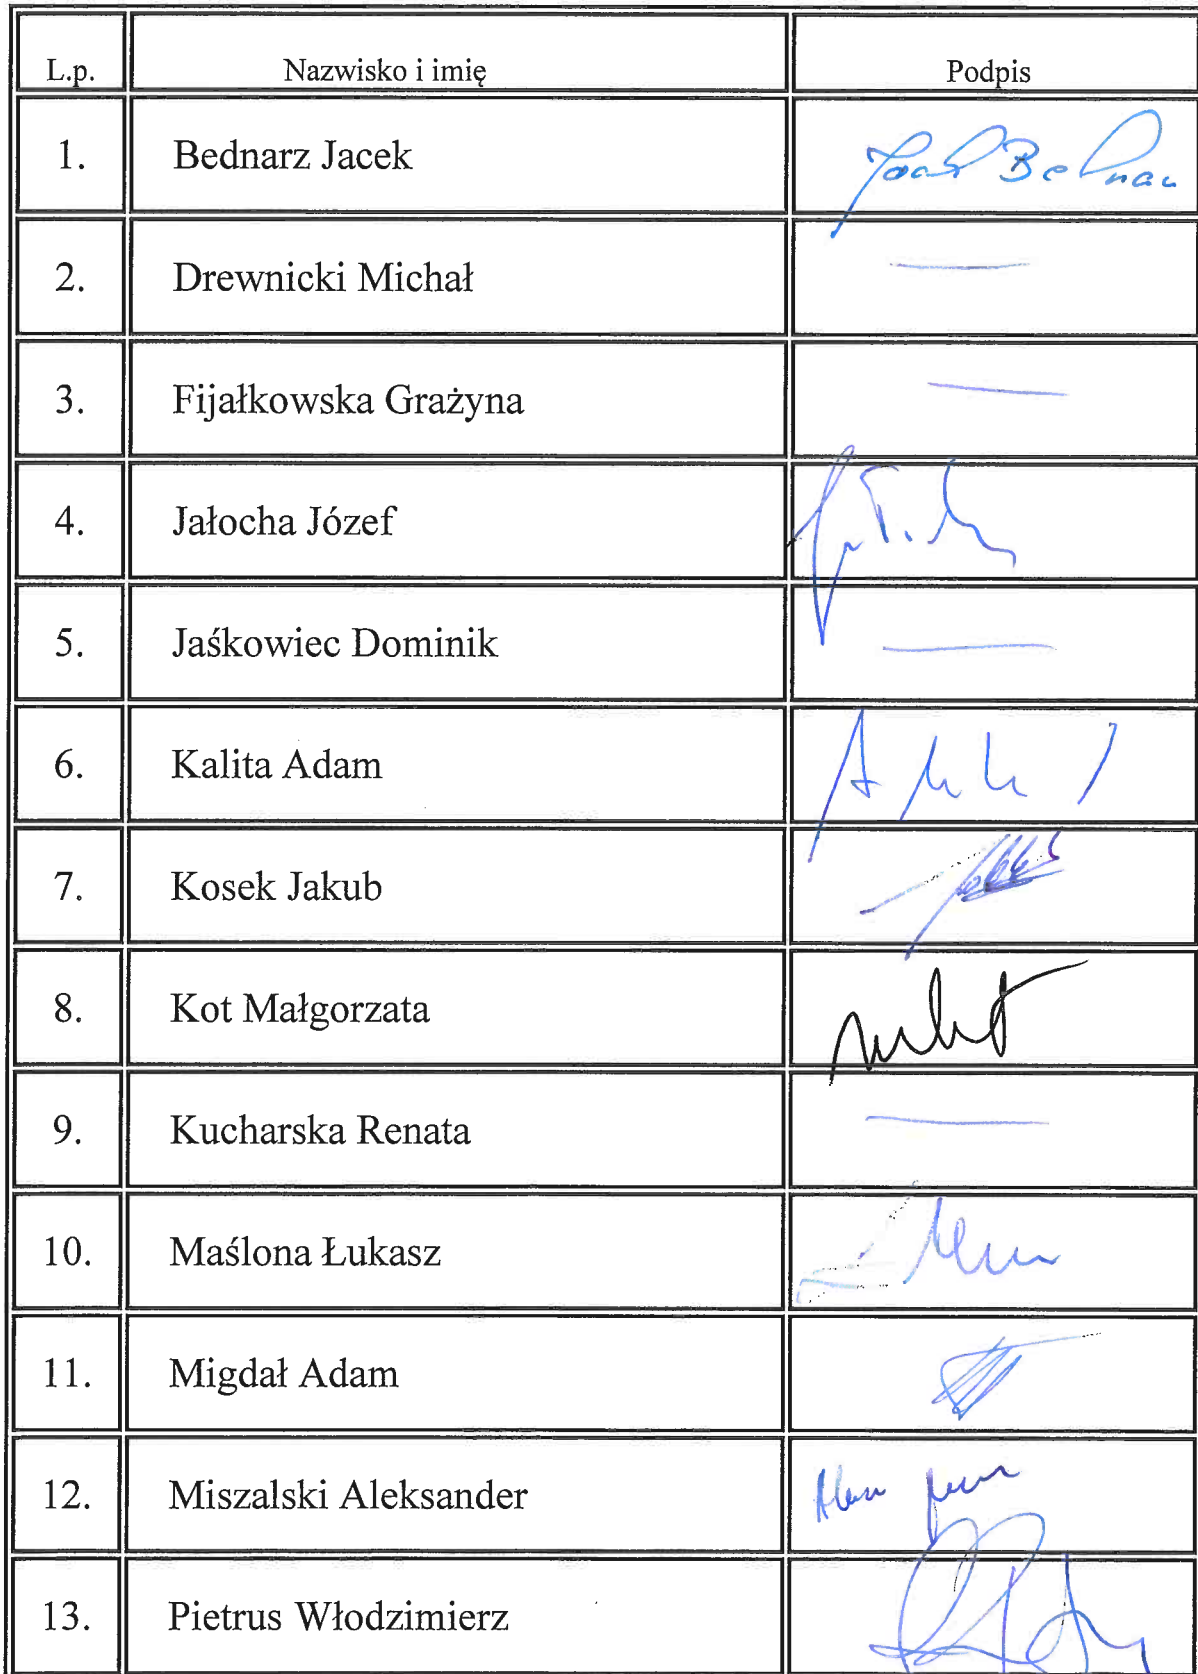 L.p. Nazwisko i imię Podpis
1. Bednarz Jacek Jacek Bednarz
2. Drewnicki Michał —
3. Fijałkowska Grażyna —
4. Jałocha Józef
5. Jaśkowiec Dominik —
6. Kalita Adam
7. Kosek Jakub
8. Kot Małgorzata
9. Kucharska Renata —
10. Maślona Łukasz
11. Migdał Adam
12. Miszalski Aleksander
13. Pietrus Włodzimierz